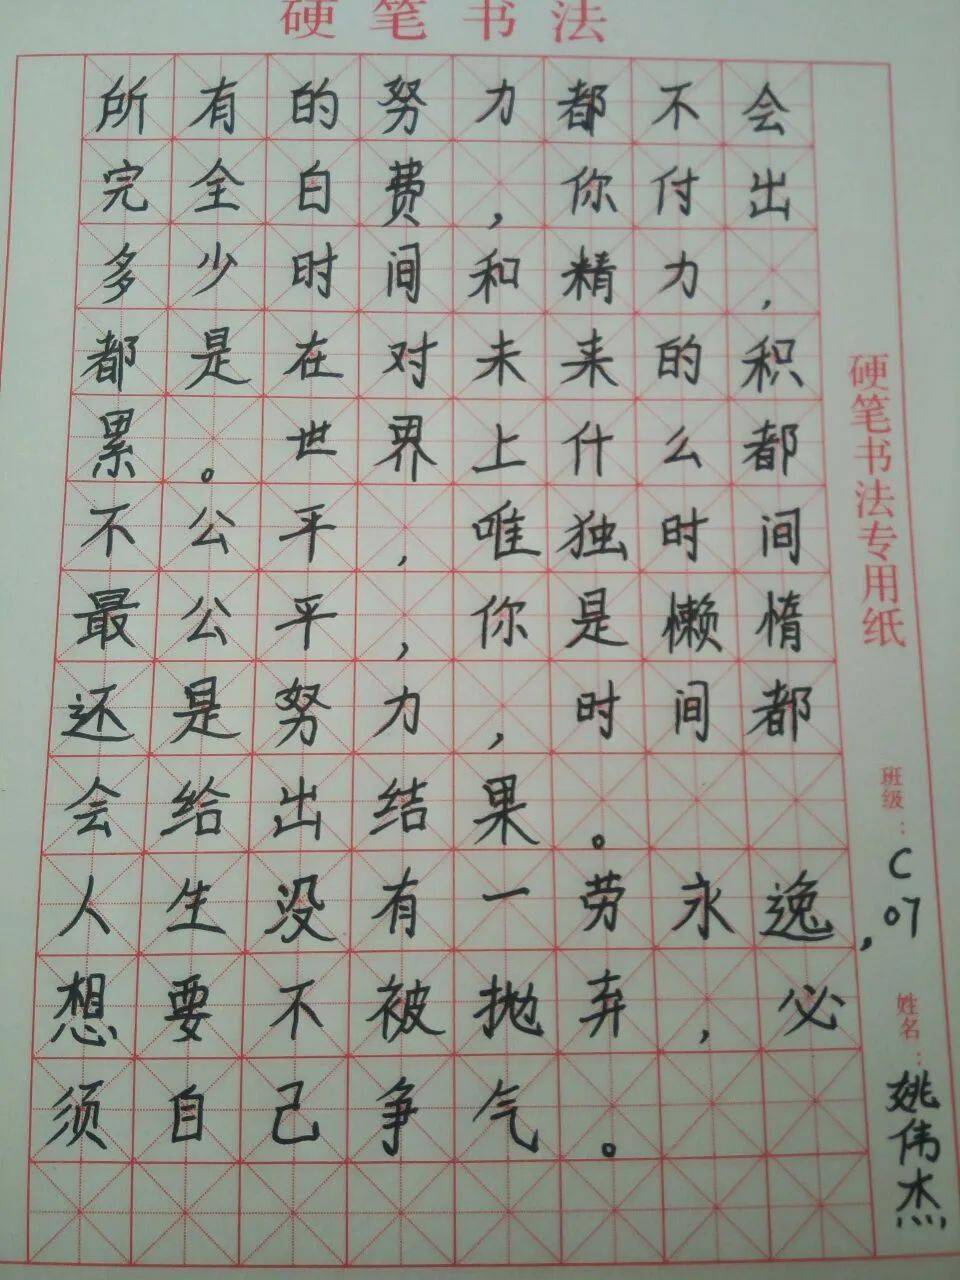 硬笔书法
所有的努力都不会
完全白费，你付出
多少时间和精力，
都是在对未来的积
累。世界上什么都
不公平，唯独时间
最公平，你是懒惰
还是努力，时间都
会给出结果。
人生没有一劳永逸，
想要不被抛弃，必
须自己争气。
硬笔书法专用纸
班级：C07
姓名：姚伟杰